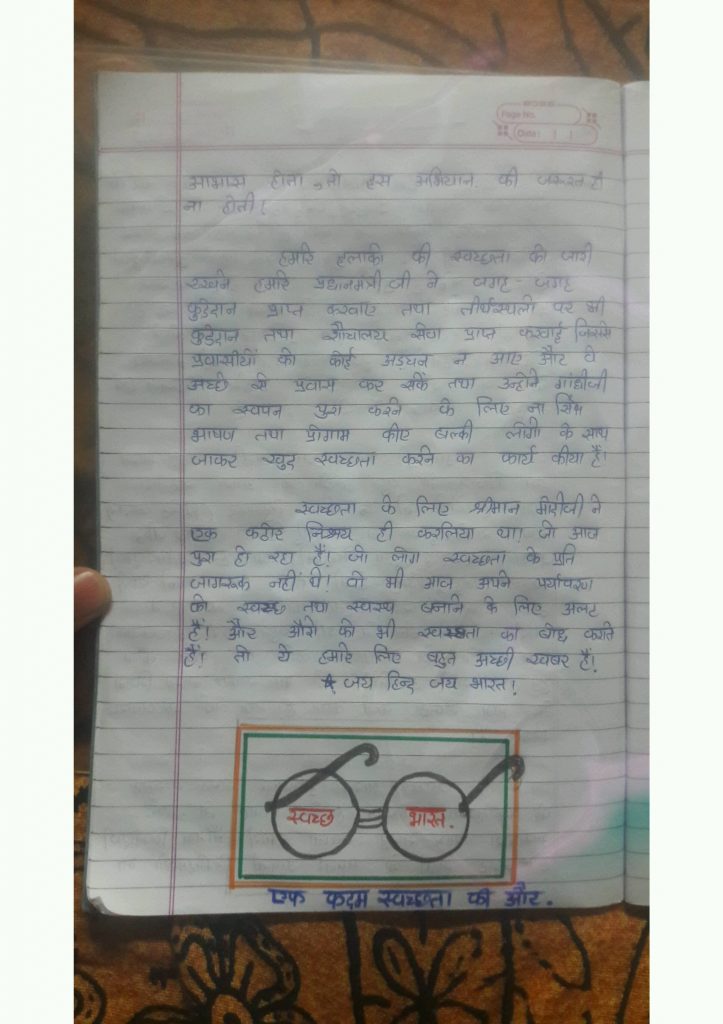 Page No.
Date: | |
आभास होता, तो इस अभियान की जरूरत ही
ना होती।
हमारे इलाके की स्वच्छता को जारी
रखने हमारे प्रधानमंत्री जी ने जगह-जगह
कुड़ेदान प्राप्त करवाए तथा तीर्थस्थलो पर भी
कुड़ेदान तथा शौचालय सेवा प्राप्त करवाई जिससे
प्रवासीयों को कोई अड़चन न आए और वे
अच्छे से प्रवास कर सकें तथा उन्होने गांधीजी
का स्वपन पुरा करने के लिए ना सिर्फ
भाषण तथा प्रोग्राम कीए बल्की लोगो के साथ
जाकर खुद स्वच्छता करने का कार्य कीया हैं।
स्वच्छता के लिए श्रीमान मोदीजी ने
एक कठोर निश्चय ही करलिया था! जो आज
पुरा हो रहा हैं! जो लोग स्वच्छता के प्रति
जागरूक नहीं थे! वो भी आज अपने पर्यावरण
को स्वच्छ तथा स्वस्थ बनाने के लिए अलर्ट
हैं! और औरो को भी स्वच्छता का बोध कराते
हैं! तो ये हमारे लिए बहुत अच्छी खबर हैं!
जय हिन्द जय भारत!
स्वच्छ भारत.
एक कदम स्वच्छता की और.